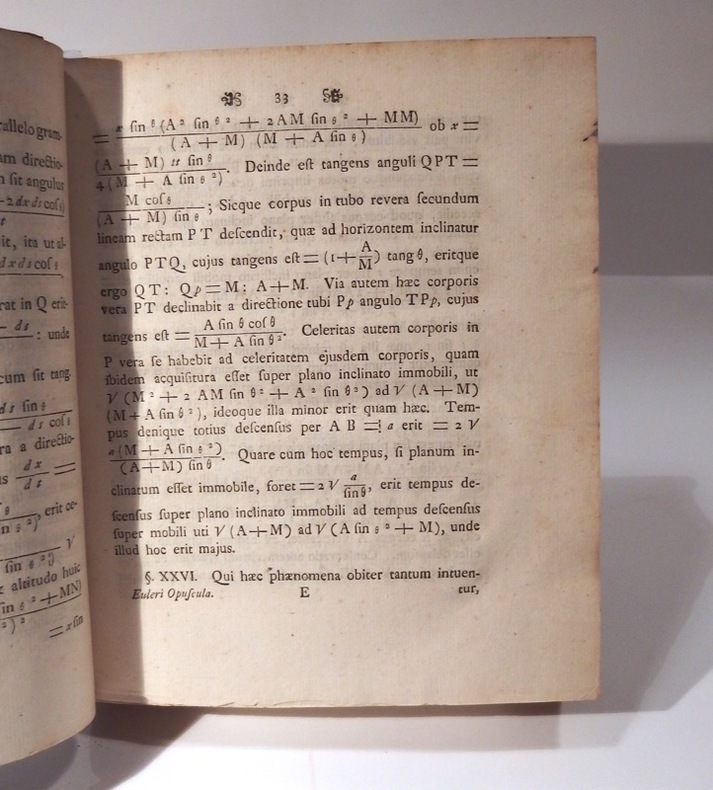 rallelogram-
am directio-
n sit angulus
- 2 dx ds cos
it, ita ut al-
dx ds cos θ
rat in Q erit-
ds : unde
cum sit tang.
ds ſin θ
ds coſ θ
ra a directio-
dx =
dt
, erit ce-
√
e altitudo huic
in θ ² + MN)
) ²
= x ſin
33
= x ſin θ (A ² ſin θ ² + 2 AM ſin θ ² + MM) ob x =
(A + M) (M + A ſin θ )
(A + M) tt ſin θ . Deinde eſt tangens anguli QPT =
4 (M + A ſin θ ²)
M coſ θ ; Sicque corpus in tubo revera ſecundum
(A + M) ſin θ
lineam rectam P T deſcendit, quæ ad horizontem inclinatur
angulo PTQ, cujus tangens eſt = (1 + A/M) tang θ, eritque
ergo QT: Qp = M: A+M. Via autem hæc corporis
vera PT declinabit a directione tubi Pp angulo TPp, cujus
tangens eſt = A ſin θ coſ θ . Celeritas autem corporis in
M + A ſin θ ²
P vera ſe habebit ad celeritatem ejusdem corporis, quam
ibidem acquiſitura eſſet ſuper plano inclinato immobili, ut
√ (M ² + 2 AM ſin θ ² + A ² ſin θ ²) ad √ (A + M)
(M + A ſin θ ²), ideoque illa minor erit quam hæc. Tem-
pus denique totius deſcenſus per A B = a erit = 2 √
a (M + A ſin θ ²) . Quare cum hoc tempus, ſi planum in-
(A + M) ſin θ
clinatum eſſet immobile, foret = 2 √ a/ſin θ, erit tempus de-
ſcenſus ſuper plano inclinato immobili ad tempus deſcenſus
ſuper mobili uti √ (A + M) ad √ (A ſin θ ² + M), unde
illud hoc erit majus.
§. XXVI. Qui hæc phænomena obiter tantum intuen-
Euleri Opuſcula. E tur,